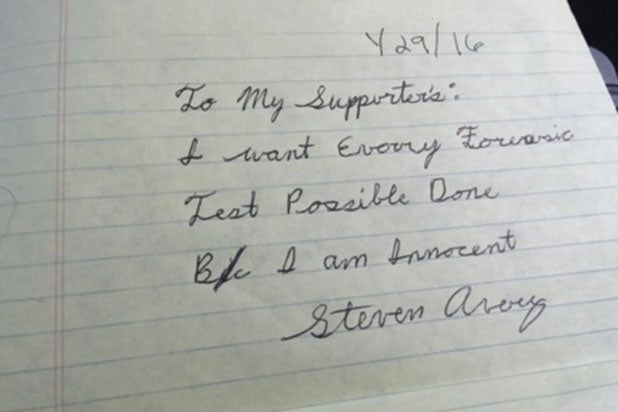 4/29/16
To My Supporter's:
I want Evovry Forensic
Test Possible Done
B/c I am Innocent
Steven Avery